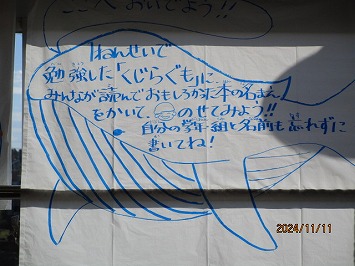 ここへおいでよう!!
1ねんせいで
勉強した「くじらぐも」に
みんなが読んでおもしろかった本の名まえ
をかいて、のせてみよう!!
自分の学年・組と名前も忘れずに
書いてね!
2024/11/11